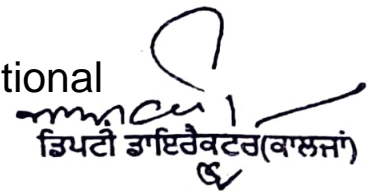 tional
ਡਿਪਟੀ ਡਾਇਰੈਕਟਰ(ਕਾਲਜਾਂ)